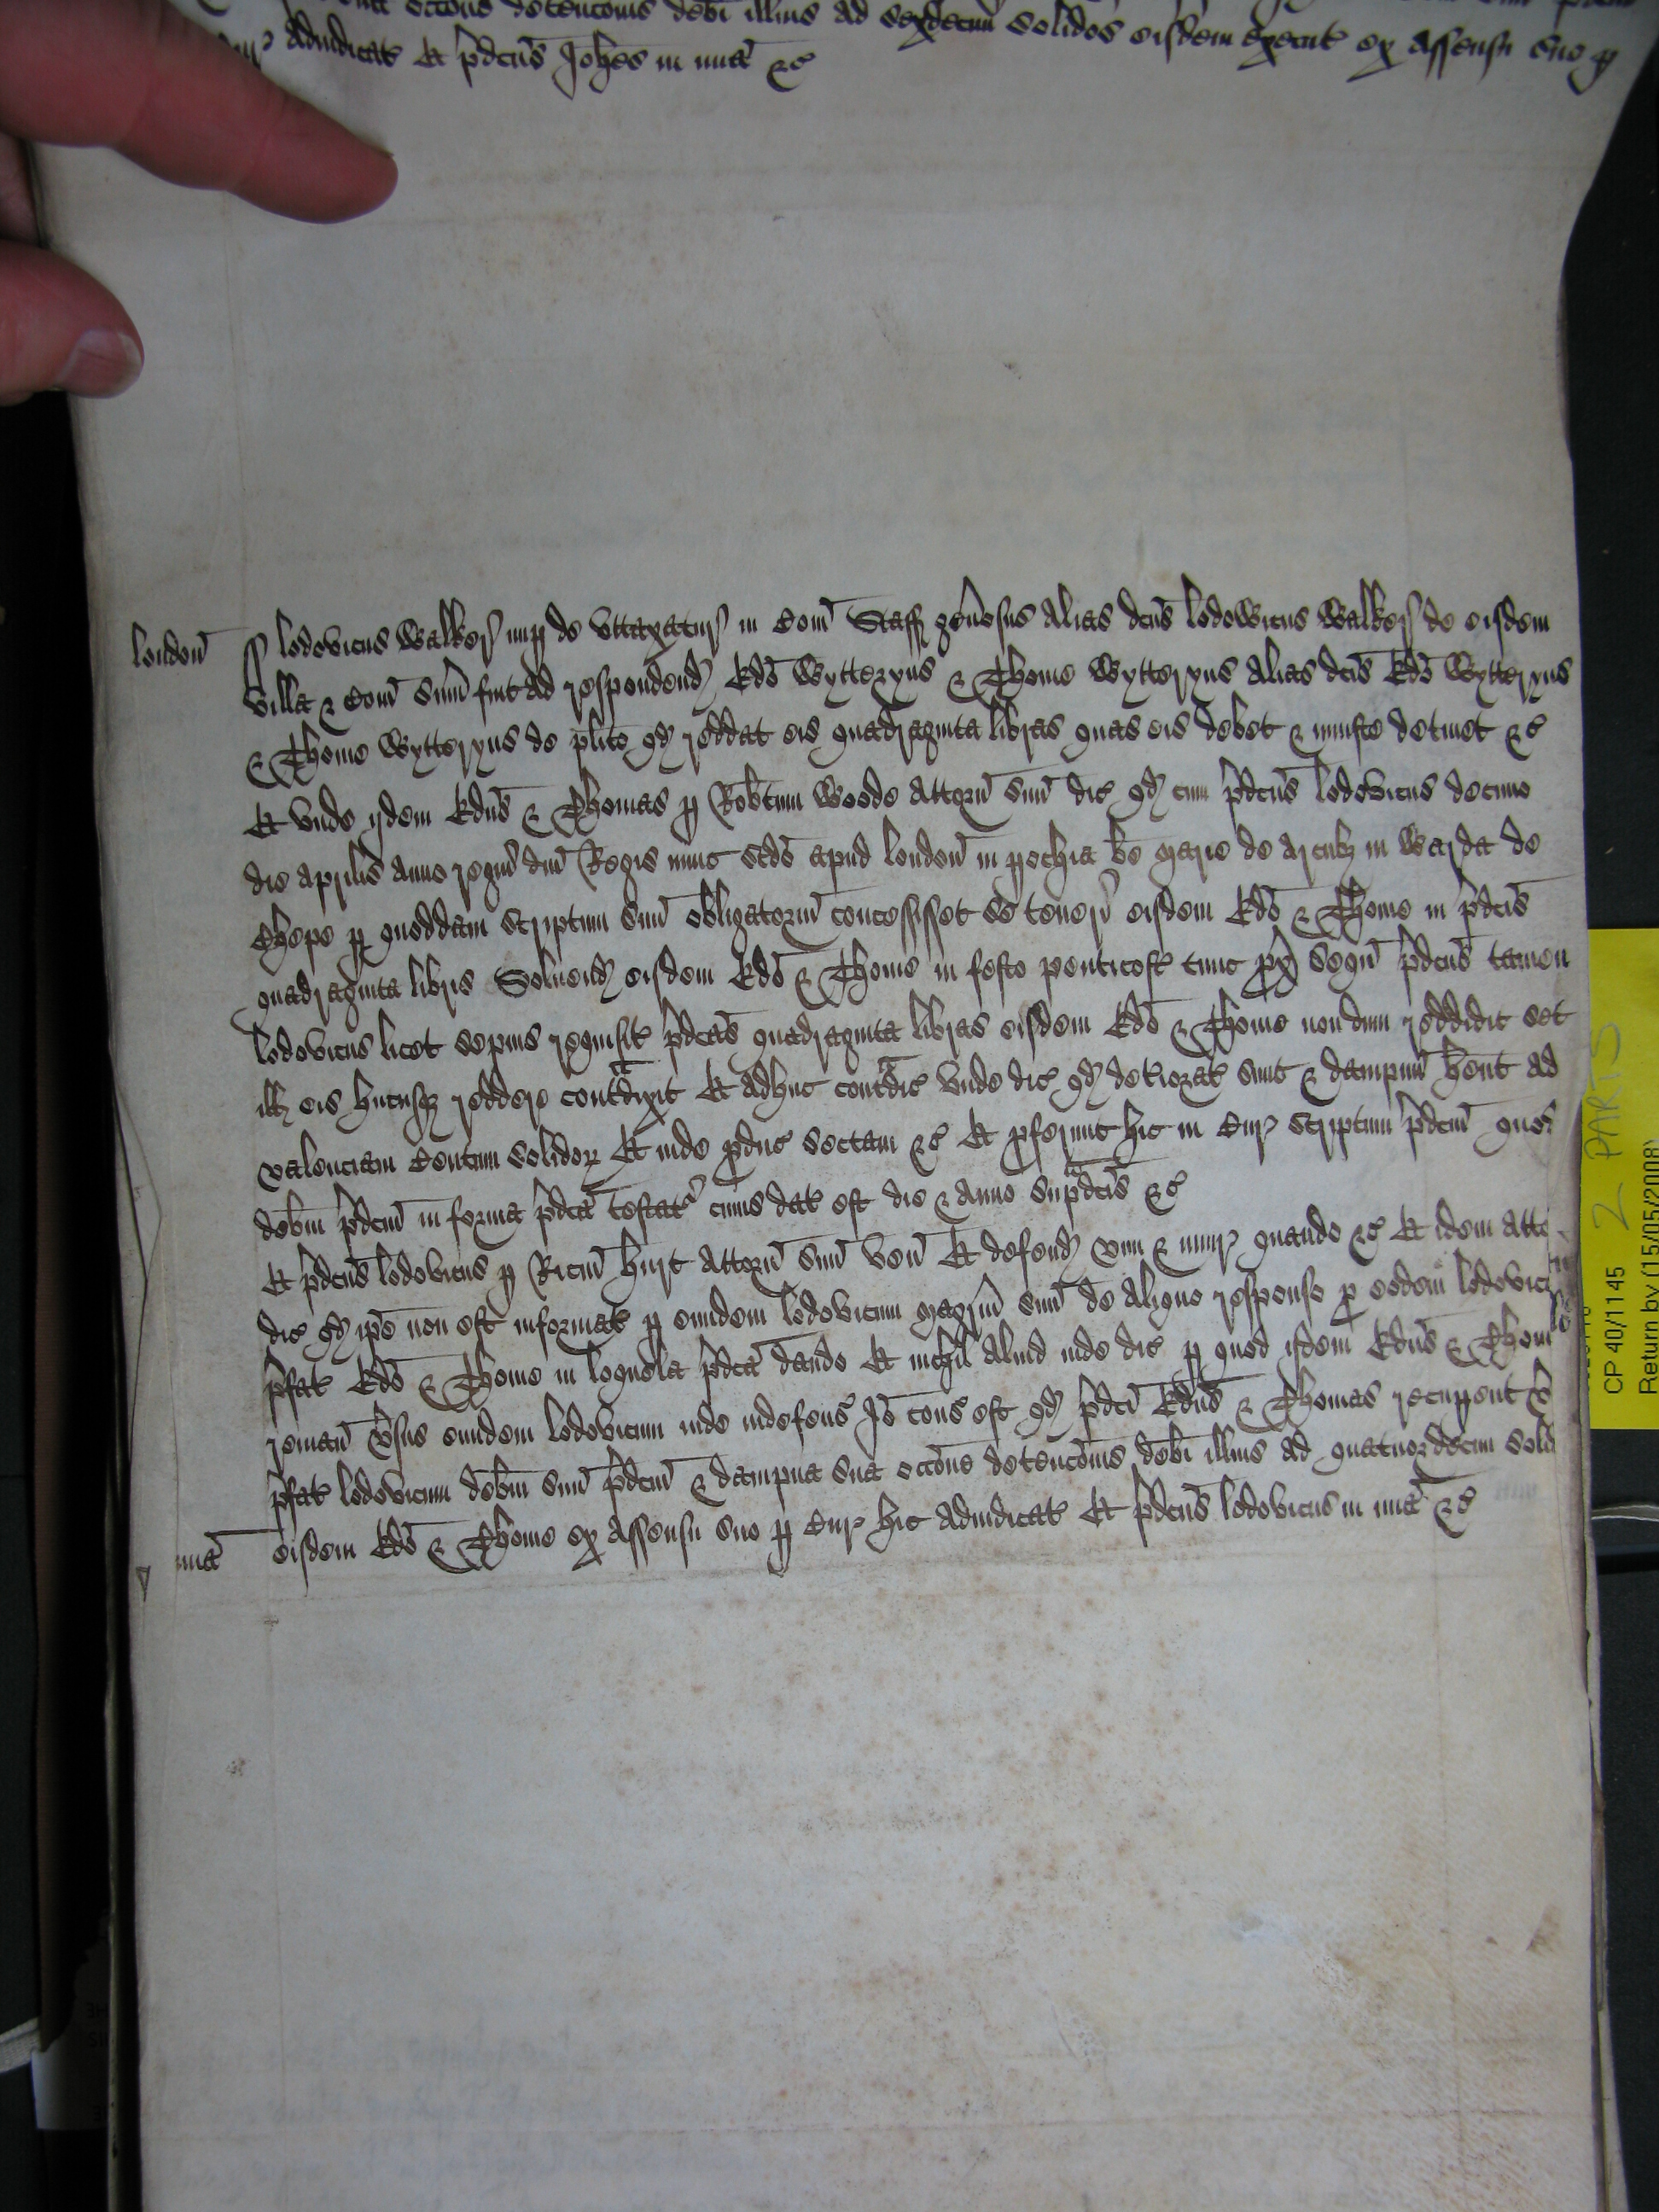 occone detenconis debi illius ad sexdecim solidos eisdem execut ex assensu suo p
adiudicat Et pdcus Johes in mia &c
london ss lodovicus Walker nup de Uttaxatur in Com Staff genosus alias dcus lodowicus Walker de eisdem
villa & Com sum fuit ad respondend Edo Wytteryns & Thome Wytteryns alias dcis Edo Wytteryns
& Thome Wytteryns de plito qd reddat eis quadraginta libras quas eis debet & iniuste detinet &c
Et unde ijdem Edus & Thomas p Robtum Woode Attorn suu dic qd cum pdcus lodovicus decimo
die aprilis anno regni dni Regis nunc scdo apud london in pochia be marie de arcubz in Warda de
Chepe p quoddam scriptum suu obligatoriu concessisset se teneri eisdem Edo & Thome in pdcis
quadraginta libris Soluend eisdem Edo & Thome in festo penticost tunc px sequ pdcus tamen
lodovicus licet sepius requisit pdcas quadraginta libras eisdem Edo & Thome nondum reddidit set
ill eis hucusqz reddere contradixit Et adhuc contradic unde dic qd deteriorat sunt & dampnu hent ad
valenciam Centum solidor Et inde pduc sectam &c Et pferunt hic in Cur scriptum pdcm quod
debm pdcm in forma pdca testat cuius dat est die & anno supadcis &c
Et pdcus lodovicus p Ricm hurt Attorn suu ven Et defend vim & iniur quando &c Et idem atto
dic qd ipe non est informat p eundem lodovicum magrm suu de aliquo responso p eodem lodovico
pfat Edo & Thome in loquela pdca dando Et nichil aliud inde dic p quod ijdem Edus & Thom
reman vsus eundem lodovicum inde indefens Io cons est qd pdci Edus & Thomas recupent v
pfat lodovicum debm suu pdcm & dampna sua occone detenconis debi illius ad quatuordecim soli
mia eisdem Edo & Thome ex assensu suo p Cur hic adiudicat Et pdcus lodovicus in mia &c
2 PARTS
CP 40/1145
Return by (15/05/2008)